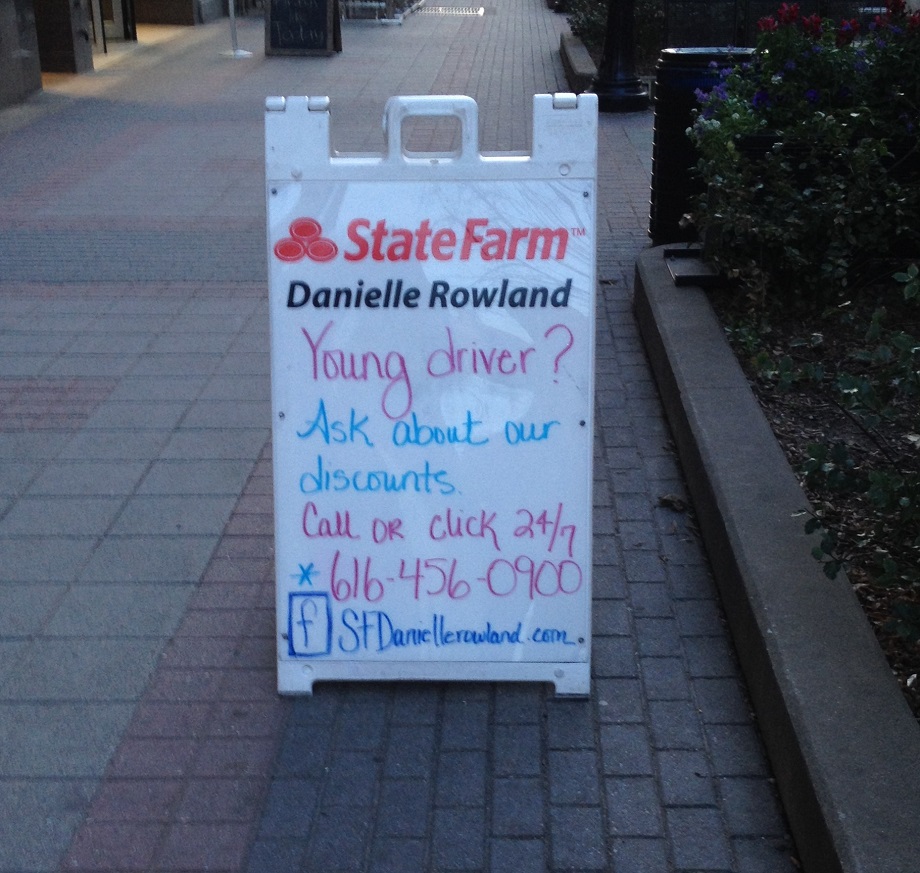 State Farm™
Danielle Rowland
Young driver?
Ask about our
discounts.
Call OR click 24/7
* 616-456-0900
f StDaniellerowland.com